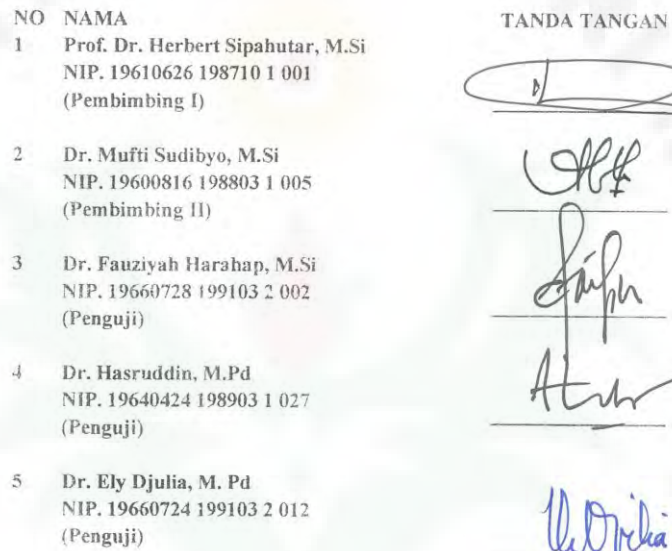 NO NAMA TANDA TANGAN
1 Prof. Dr. Herbert Sipahutar, M.Si
NIP. 19610626 198710 1 001
(Pembimbing I)
2 Dr. Mufti Sudibyo, M.Si
NIP. 19600816 198803 1 005
(Pembimbing II)
3 Dr. Fauziyah Harahap, M.Si
NIP. 19660728 199103 2 002
(Penguji)
4 Dr. Hasruddin, M.Pd
NIP. 19640424 198903 1 027
(Penguji)
5 Dr. Ely Djulia, M. Pd
NIP. 19660724 199103 2 012
(Penguji)